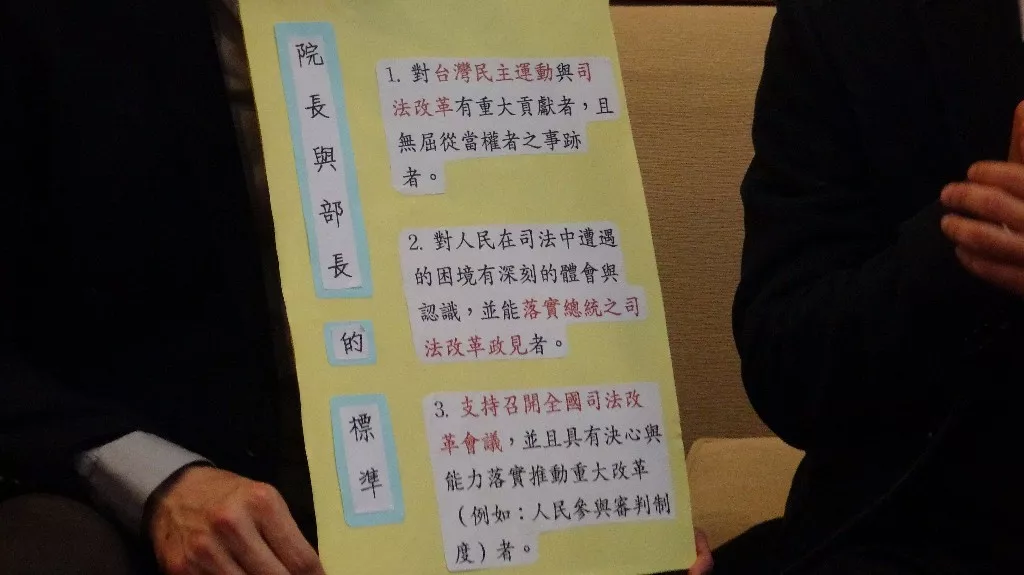 院長與部長
的
標準
1. 對台灣民主運動與司
法改革有重大貢獻者，且
無屈從當權者之事跡
者。
2. 對人民在司法中遭遇
的困境有深刻的體會與
認識，並能落實總統之司
法改革政見者。
3. 支持召開全國司法改
革會議，並且具有決心與
能力落實推動重大改革
（例如：人民參與審判制
度）者。